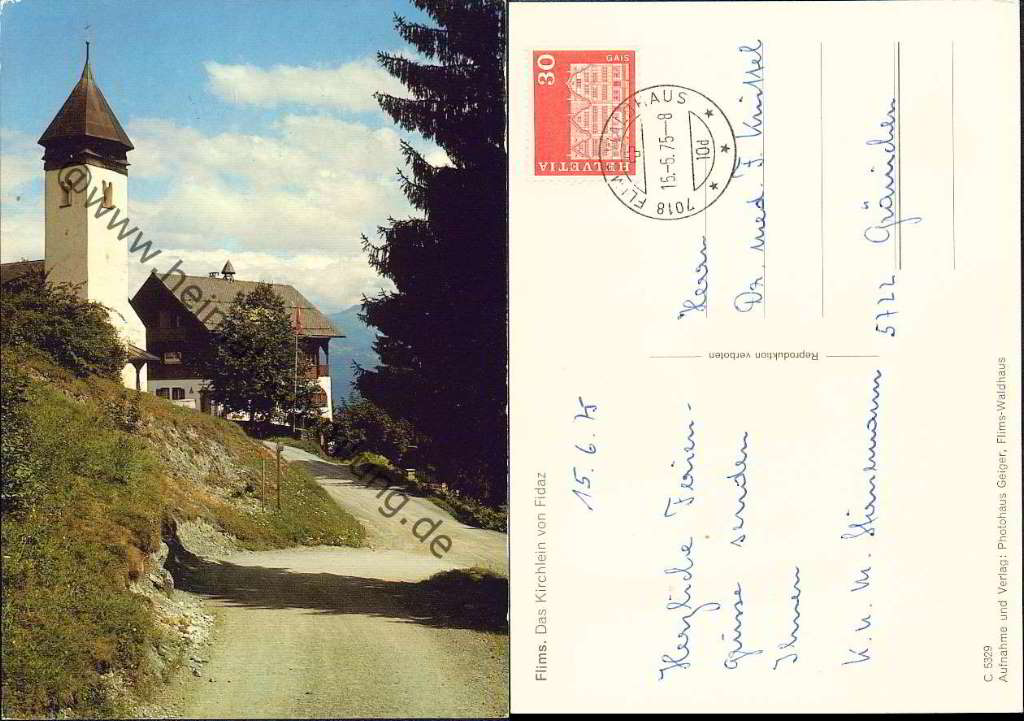 Flims. Das Kirchlein von Fidaz
15. 6. 75
Herzliche Ferien-
grüsse senden
Ihnen
K. u. M. Stirnemann
C 5329
Aufnahme und Verlag: Photohaus Geiger, Flims-Waldhaus
Reproduktion verboten
30
GAIS
HELVETIA
7018 FLIMS WALDHAUS
15.-6.75-8
Herrn
Dr. med. F. Knüsel
5722 Gränichen
@www.heim
ung.de